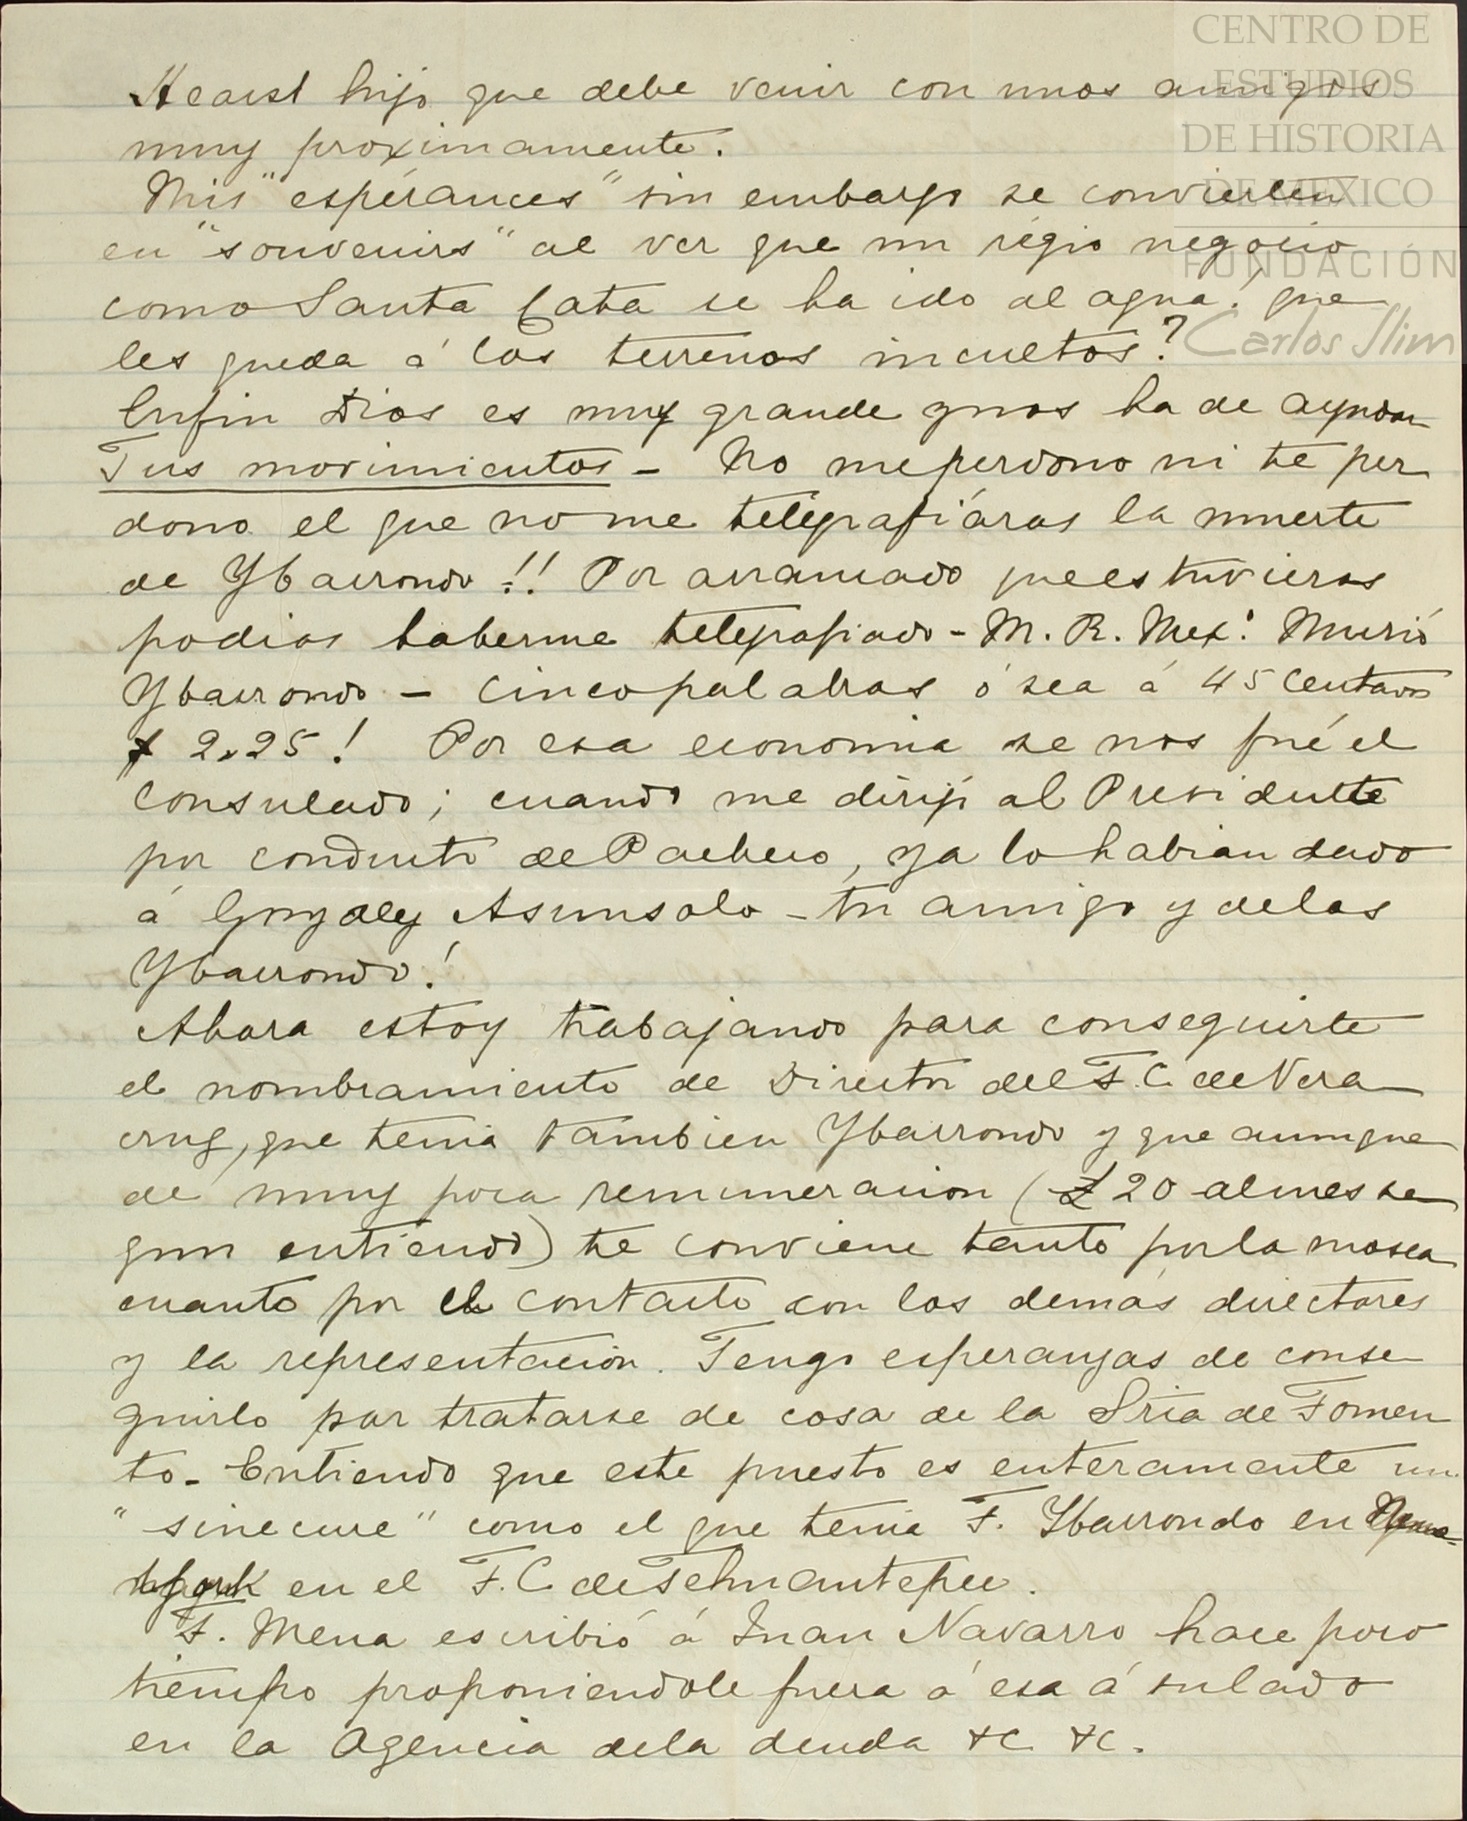 CENTRO DE
ESTUDIOS
DE HISTORIA
DE MEXICO
FUNDACIÓN
Carlos Slim
Hearst hijo que debe venir con unos amigos
muy proximamente.
Mis "espérances" sin embargo se convierten
en "souvenirs" al ver que un régio negocio
como Santa Cata se ha ido al agua! que
les queda á los terrenos incultos?
Enfin Dios es muy grande y nos ha de ayudar
Tus movimientos - No me perdono ni te per
dono el que no me telégrafiáras la muerte
de Ybarrondo!!! Por arrancado que estuvieras
podias haberme telegrafiado - M. R. Mex: Murió
Ybarrondo - Cinco palabras ó sea á 45 centavos
$ 2.25! Por esa economia se nos fué el
Consulado; cuando me dirijí al Presidente
por conducto de Pacheco, ya lo habian dado
á Gonzalez Asunsolo - tu amigo y de los
Ybarrondo!
Ahora estoy trabajando para conseguirte
el nombramiento de Director del F.C. de Vera
cruz, que tenia tambien Ybarrondo y que aunque
de muy poca remuneracion (£20 al mes se
gun entiendo) te conviene tanto por la mosca
cuanto por el contacto con los demás directores
y la representación. Tengo esperanzas de conse
guirlo por tratarse de cosa de la Sria de Fomen
to - Entiendo que este puesto es enteramente un
"sinecure" como el que tenia F. Ybarrondo en
en el F.C. de Tehuantepec.
F. Mena escribió á Juan Navarro hace poco
tiempo proponiendole fuera á esa á su lado
en la Agencia de la deuda &c &c.